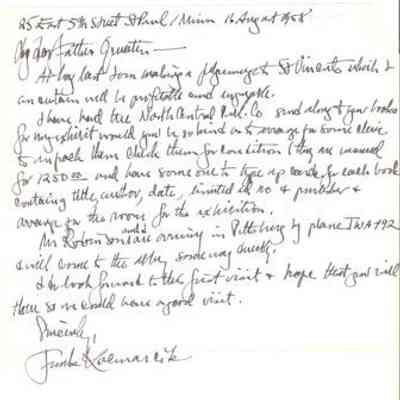 25 East 5th Street St Paul 1 Minn 16 August 1958
My dear Father
At long last I am making a pilgrimage to St Vincents which I
am certain will be profitable and enjoyable.
I have had the North Central Pub. Co send along to you books
for my exhibit would you be so kind as to arrange for some cleric
to unpack them check them for condition (they are insured
for 1250.00 and have some one to type up cards for each book
containing title, author, date, limited ed no & publisher &
arrange for the room for the exhibition.
Mr Robinson and I are arriving in Pittsburg by plane TWA 492
& will come to the abbey some way
I do look forward to this first visit & hope that you will
there so we could have a good visit.
Sincerely,
Frank Kacmarcik